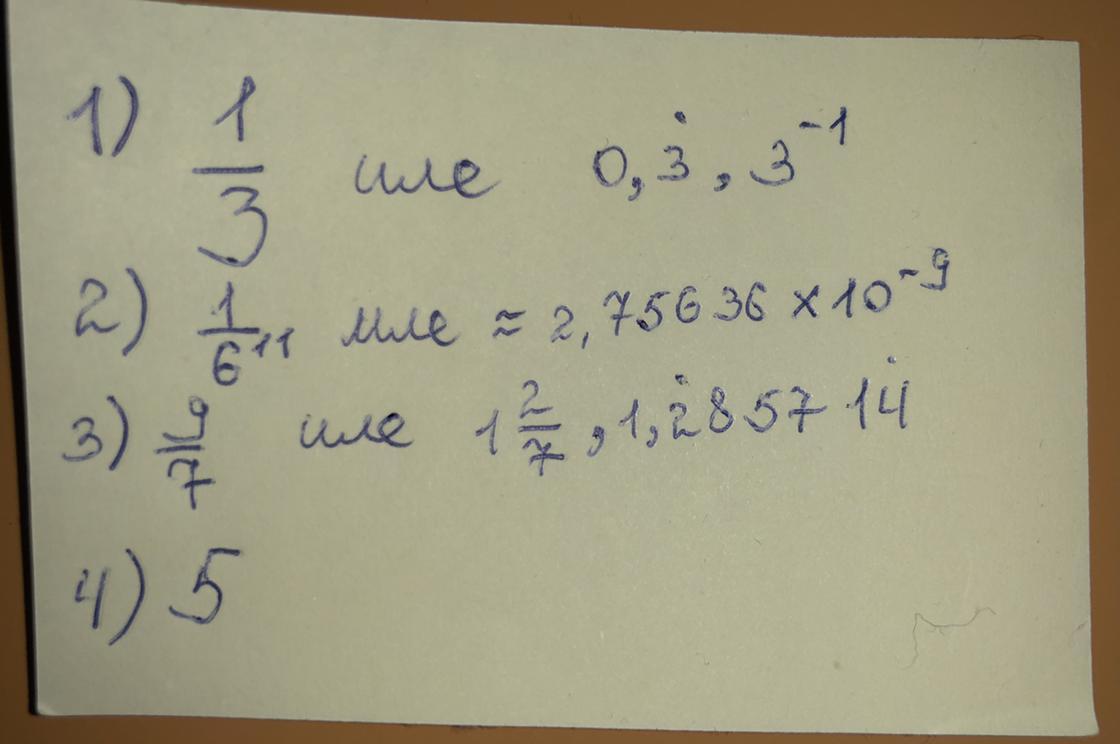 1) 1/3 иле 0,3̇, 3⁻¹
2) 1/6¹¹ иле ≈ 2,75636 × 10⁻⁹
3) 9/7 иле 1 2/7, 1,2̇85714̇
4) 5